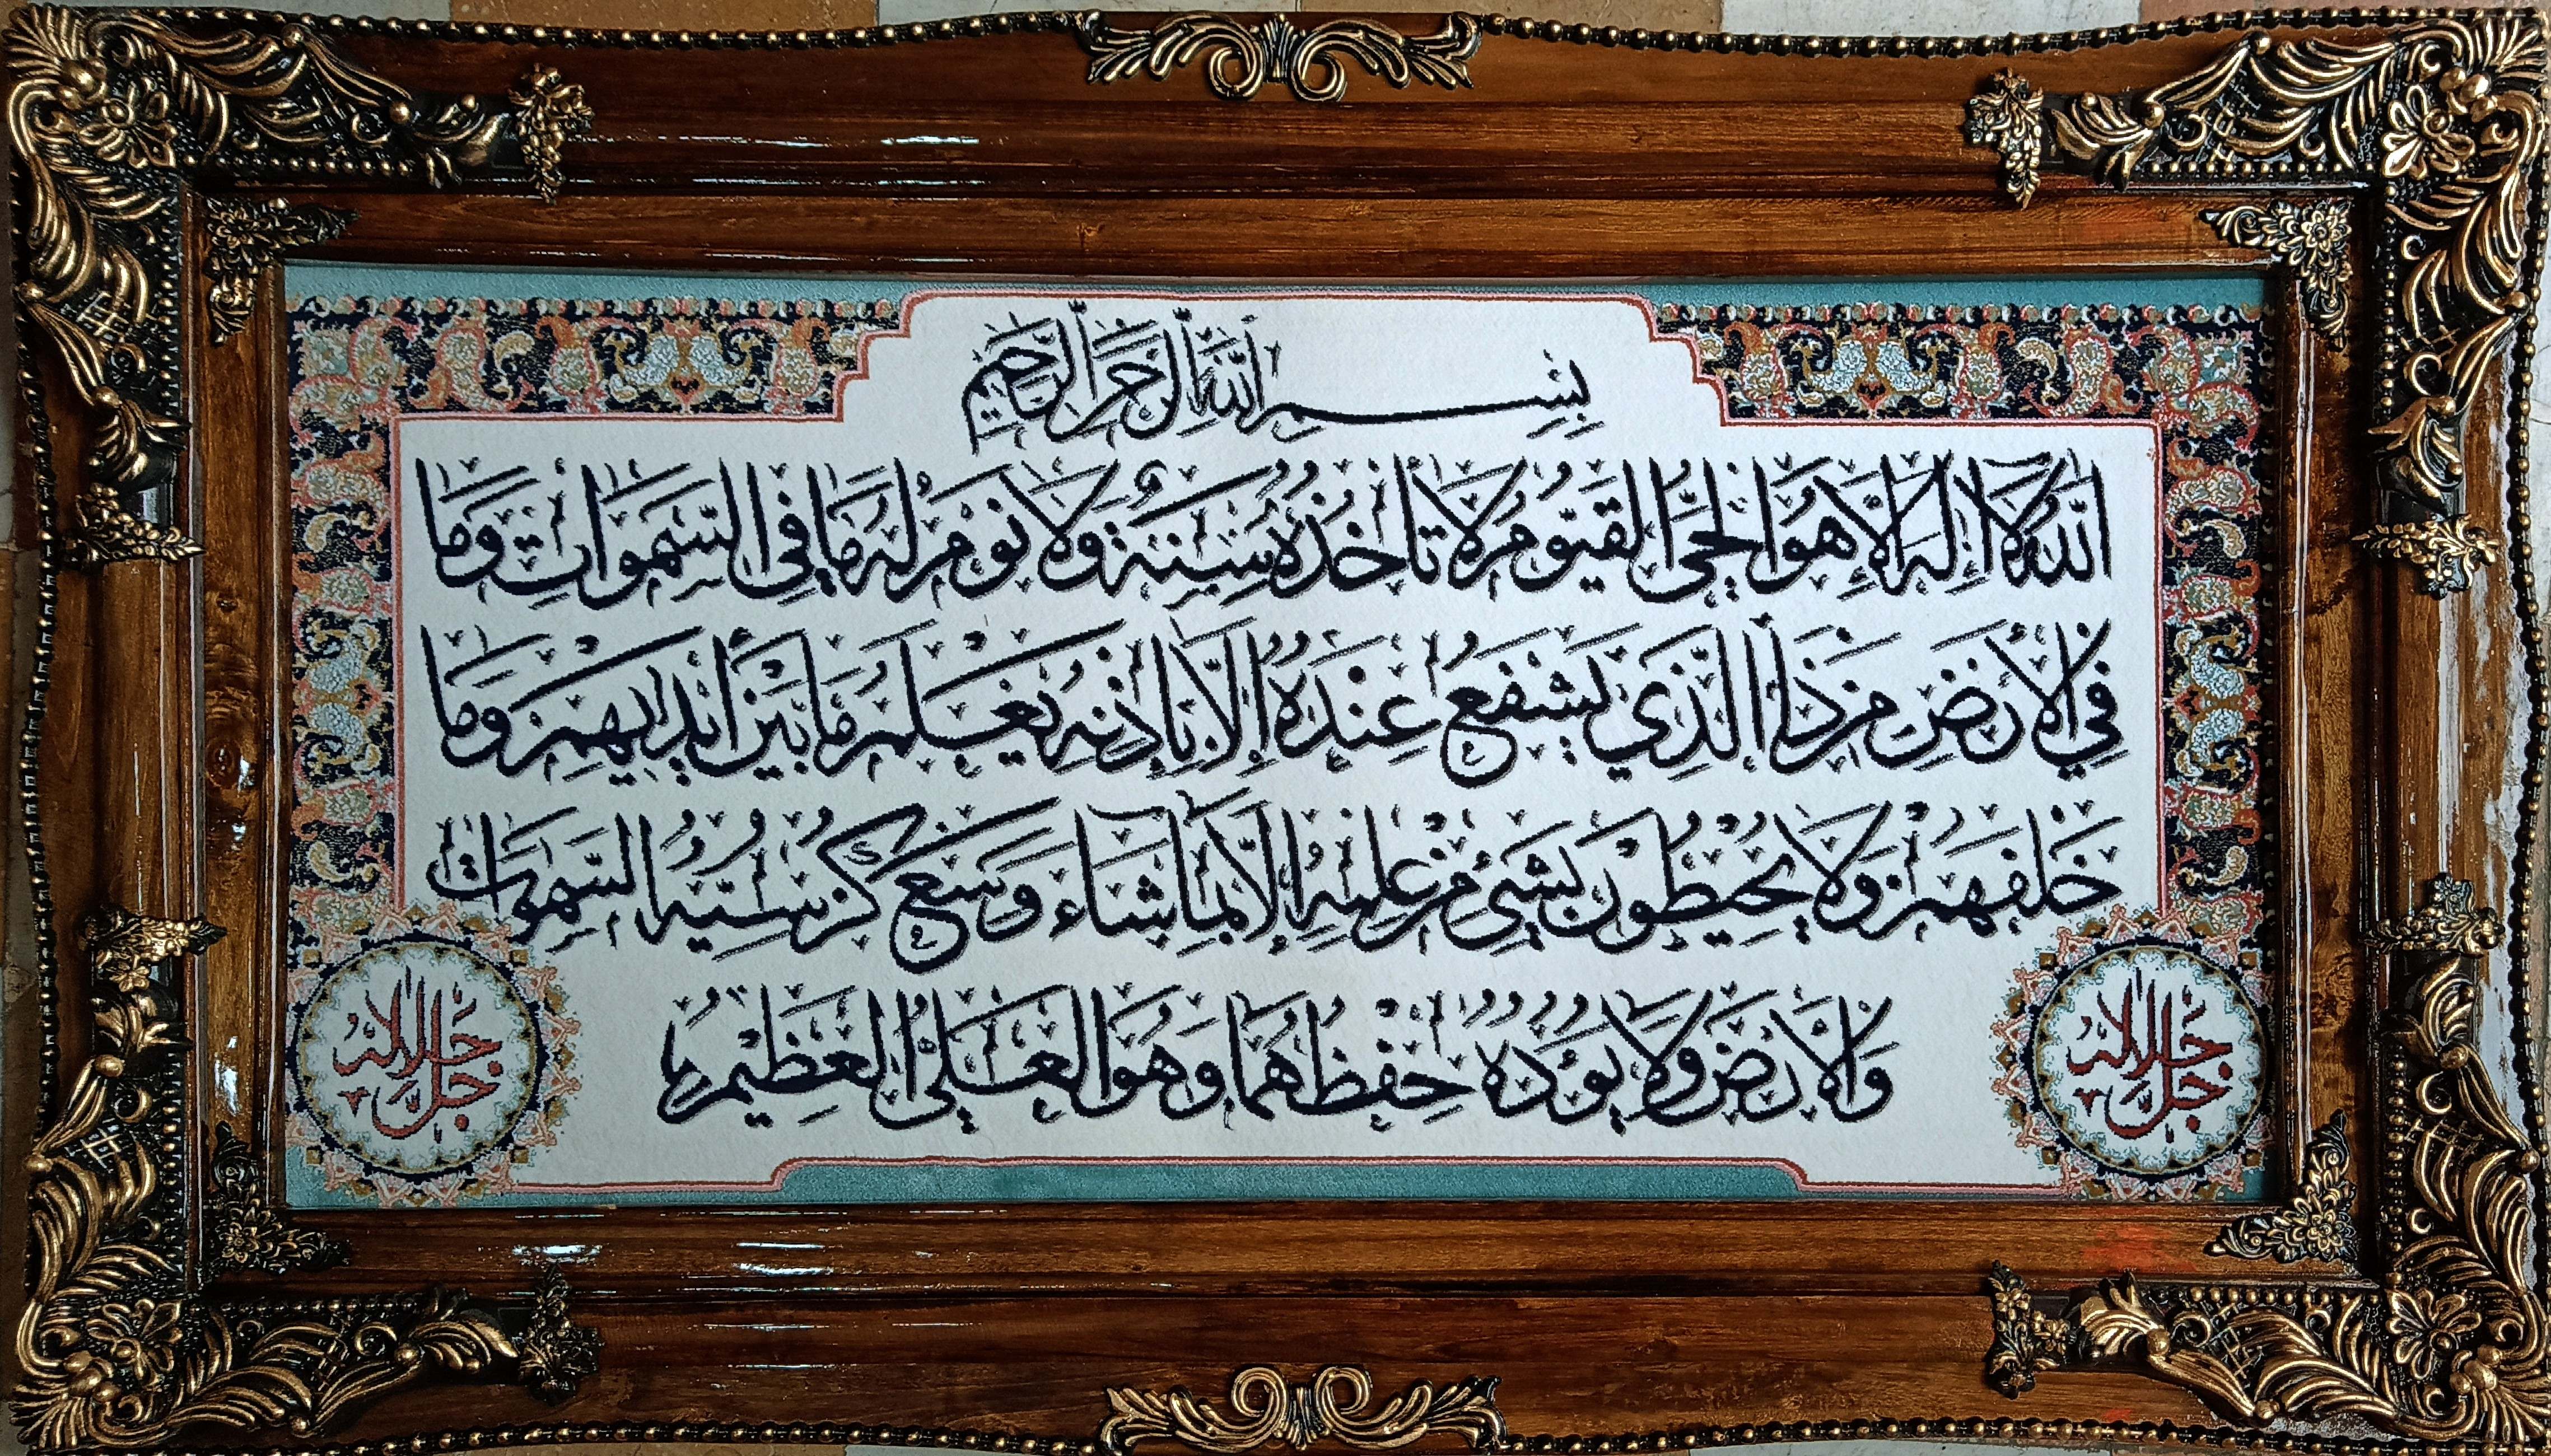 بِسْمِ اللَّهِ الرَّحْمَٰنِ الرَّحِيمِ
اللَّهُ لَا إِلَهَ إِلَّا هُوَ الْحَيُّ الْقَيُّومُ لَا تَأْخُذُهُ سِنَةٌ وَلَا نَوْمٌ لَهُ مَا فِي السَّمَوَاتِ وَمَا
فِي الْأَرْضِ مَنْ ذَا الَّذِي يَشْفَعُ عِنْدَهُ إِلَّا بِإِذْنِهِ يَعْلَمُ مَا بَيْنَ أَيْدِيهِمْ وَمَا
خَلْفَهُمْ وَلَا يُحِيطُونَ بِشَيْءٍ مِنْ عِلْمِهِ إِلَّا بِمَا شَاءَ وَسِعَ كُرْسِيُّهُ السَّمَوَاتِ
وَالْأَرْضَ وَلَا يَؤُدُهُ حِفْظُهُمَا وَهُوَ الْعَلِيُّ الْعَظِيمُ
جَلَّ جَلَالُهُ
جَلَّ جَلَالُهُ